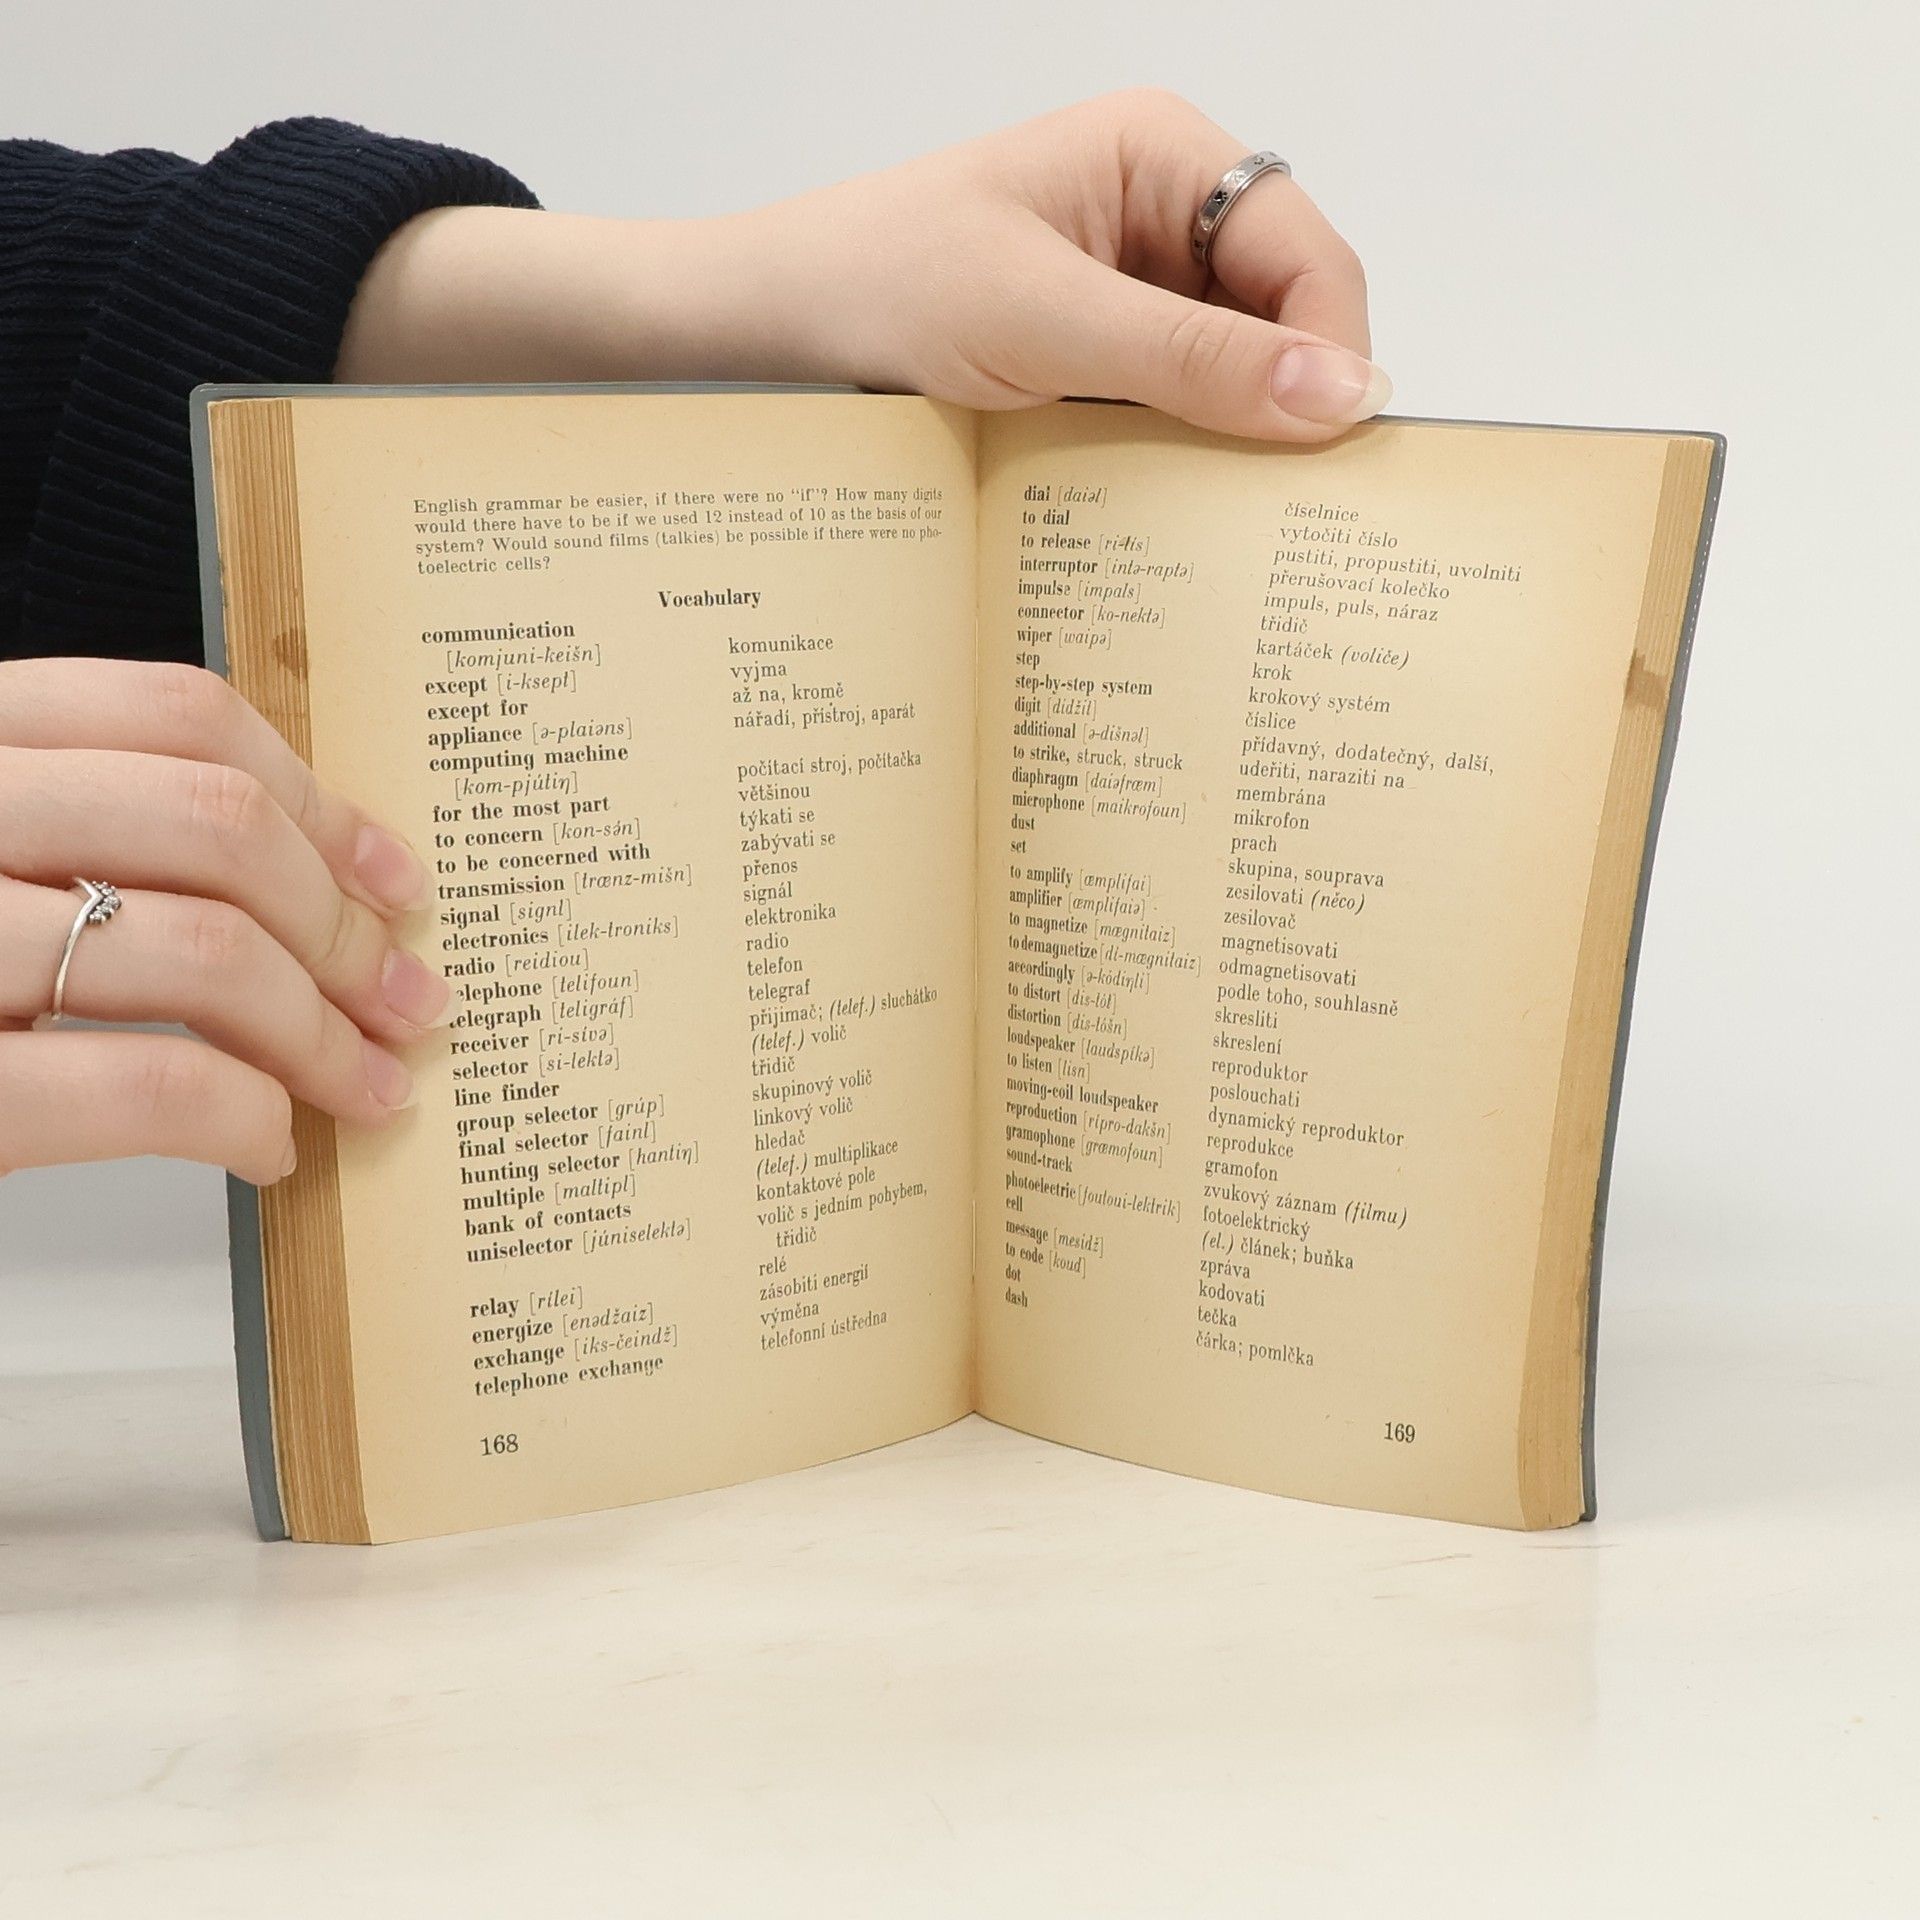 English grammar be easier, if there were no “if”? How many digits
would there have to be if we used 12 instead of 10 as the basis of our
system? Would sound films (talkies) be possible if there were no pho-
toelectric cells?
Vocabulary
communication
[komjuni-keišn] komunikace
except [i-ksept] vyjma
except for až na, kromě
appliance [ə-plaiəns] nářadí, přístroj, aparát
computing machine
[kom-pjútiŋ] počítací stroj, počítačka
for the most part většinou
to concern [kon-sə́n] týkati se
to be concerned with zabývati se
transmission [trænz-mišn] přenos
signal [signl] signál
electronics [ilek-troniks] elektronika
radio [reidiou] radio
elephone [telifoun] telefon
elegraph [teligráf] telegraf
receiver [ri-sívə] přijimač; (telef.) sluchátko
selector [si-lektə] (telef.) volič
line finder třidič
group selector [grúp] skupinový volič
final selector [fainl] linkový volič
hunting selector [hantiŋ] hledač
multiple [maltipl] (telef.) multiplikace
bank of contacts kontaktové pole
uniselector [júniselektə] volič s jedním pohybem,
třidič
relay [rílei] relé
energize [enədžaiz] zásobiti energií
exchange [iks-čeindž] výměna
telephone exchange telefonní ústředna
168
dial [daiəl] číselnice
to dial vytočiti číslo
to release [ri-lís] pustiti, propustiti, uvolniti
interruptor [intə-raptə] přerušovací kolečko
impulse [impals] impuls, puls, náraz
connector [ko-nektə] třidič
wiper [waipə] kartáček (voliče)
step krok
step-by-step system krokový systém
digit [didžit] číslice
additional [ə-dišnəl] přídavný, dodatečný, další,
to strike, struck, struck udeřiti, naraziti na
diaphragm [daiəfræm] membrána
microphone [maikrofoun] mikrofon
dust prach
set skupina, souprava
to amplify [æmplifai] zesilovati (něco)
amplifier [æmplifaiə] zesilovač
to magnetize [mægnitaiz] magnetisovati
to demagnetize [dí-mægnitaiz] odmagnetisovati
accordingly [ə-kódiŋli] podle toho, souhlasně
to distort [dis-tót] skresliti
distortion [dis-tóšn] skreslení
loudspeaker [laudspíkə] reproduktor
to listen [lisn] poslouchati
moving-coil loudspeaker dynamický reproduktor
reproduction [rípro-dakšn] reprodukce
gramophone [græmofoun] gramofon
sound-track zvukový záznam (filmu)
photoelectric [foutoui-lektrik] fotoelektrický
cell (el.) článek; buňka
message [mesidž] zpráva
to code [koud] kodovati
dot tečka
dash čárka; pomlčka
169